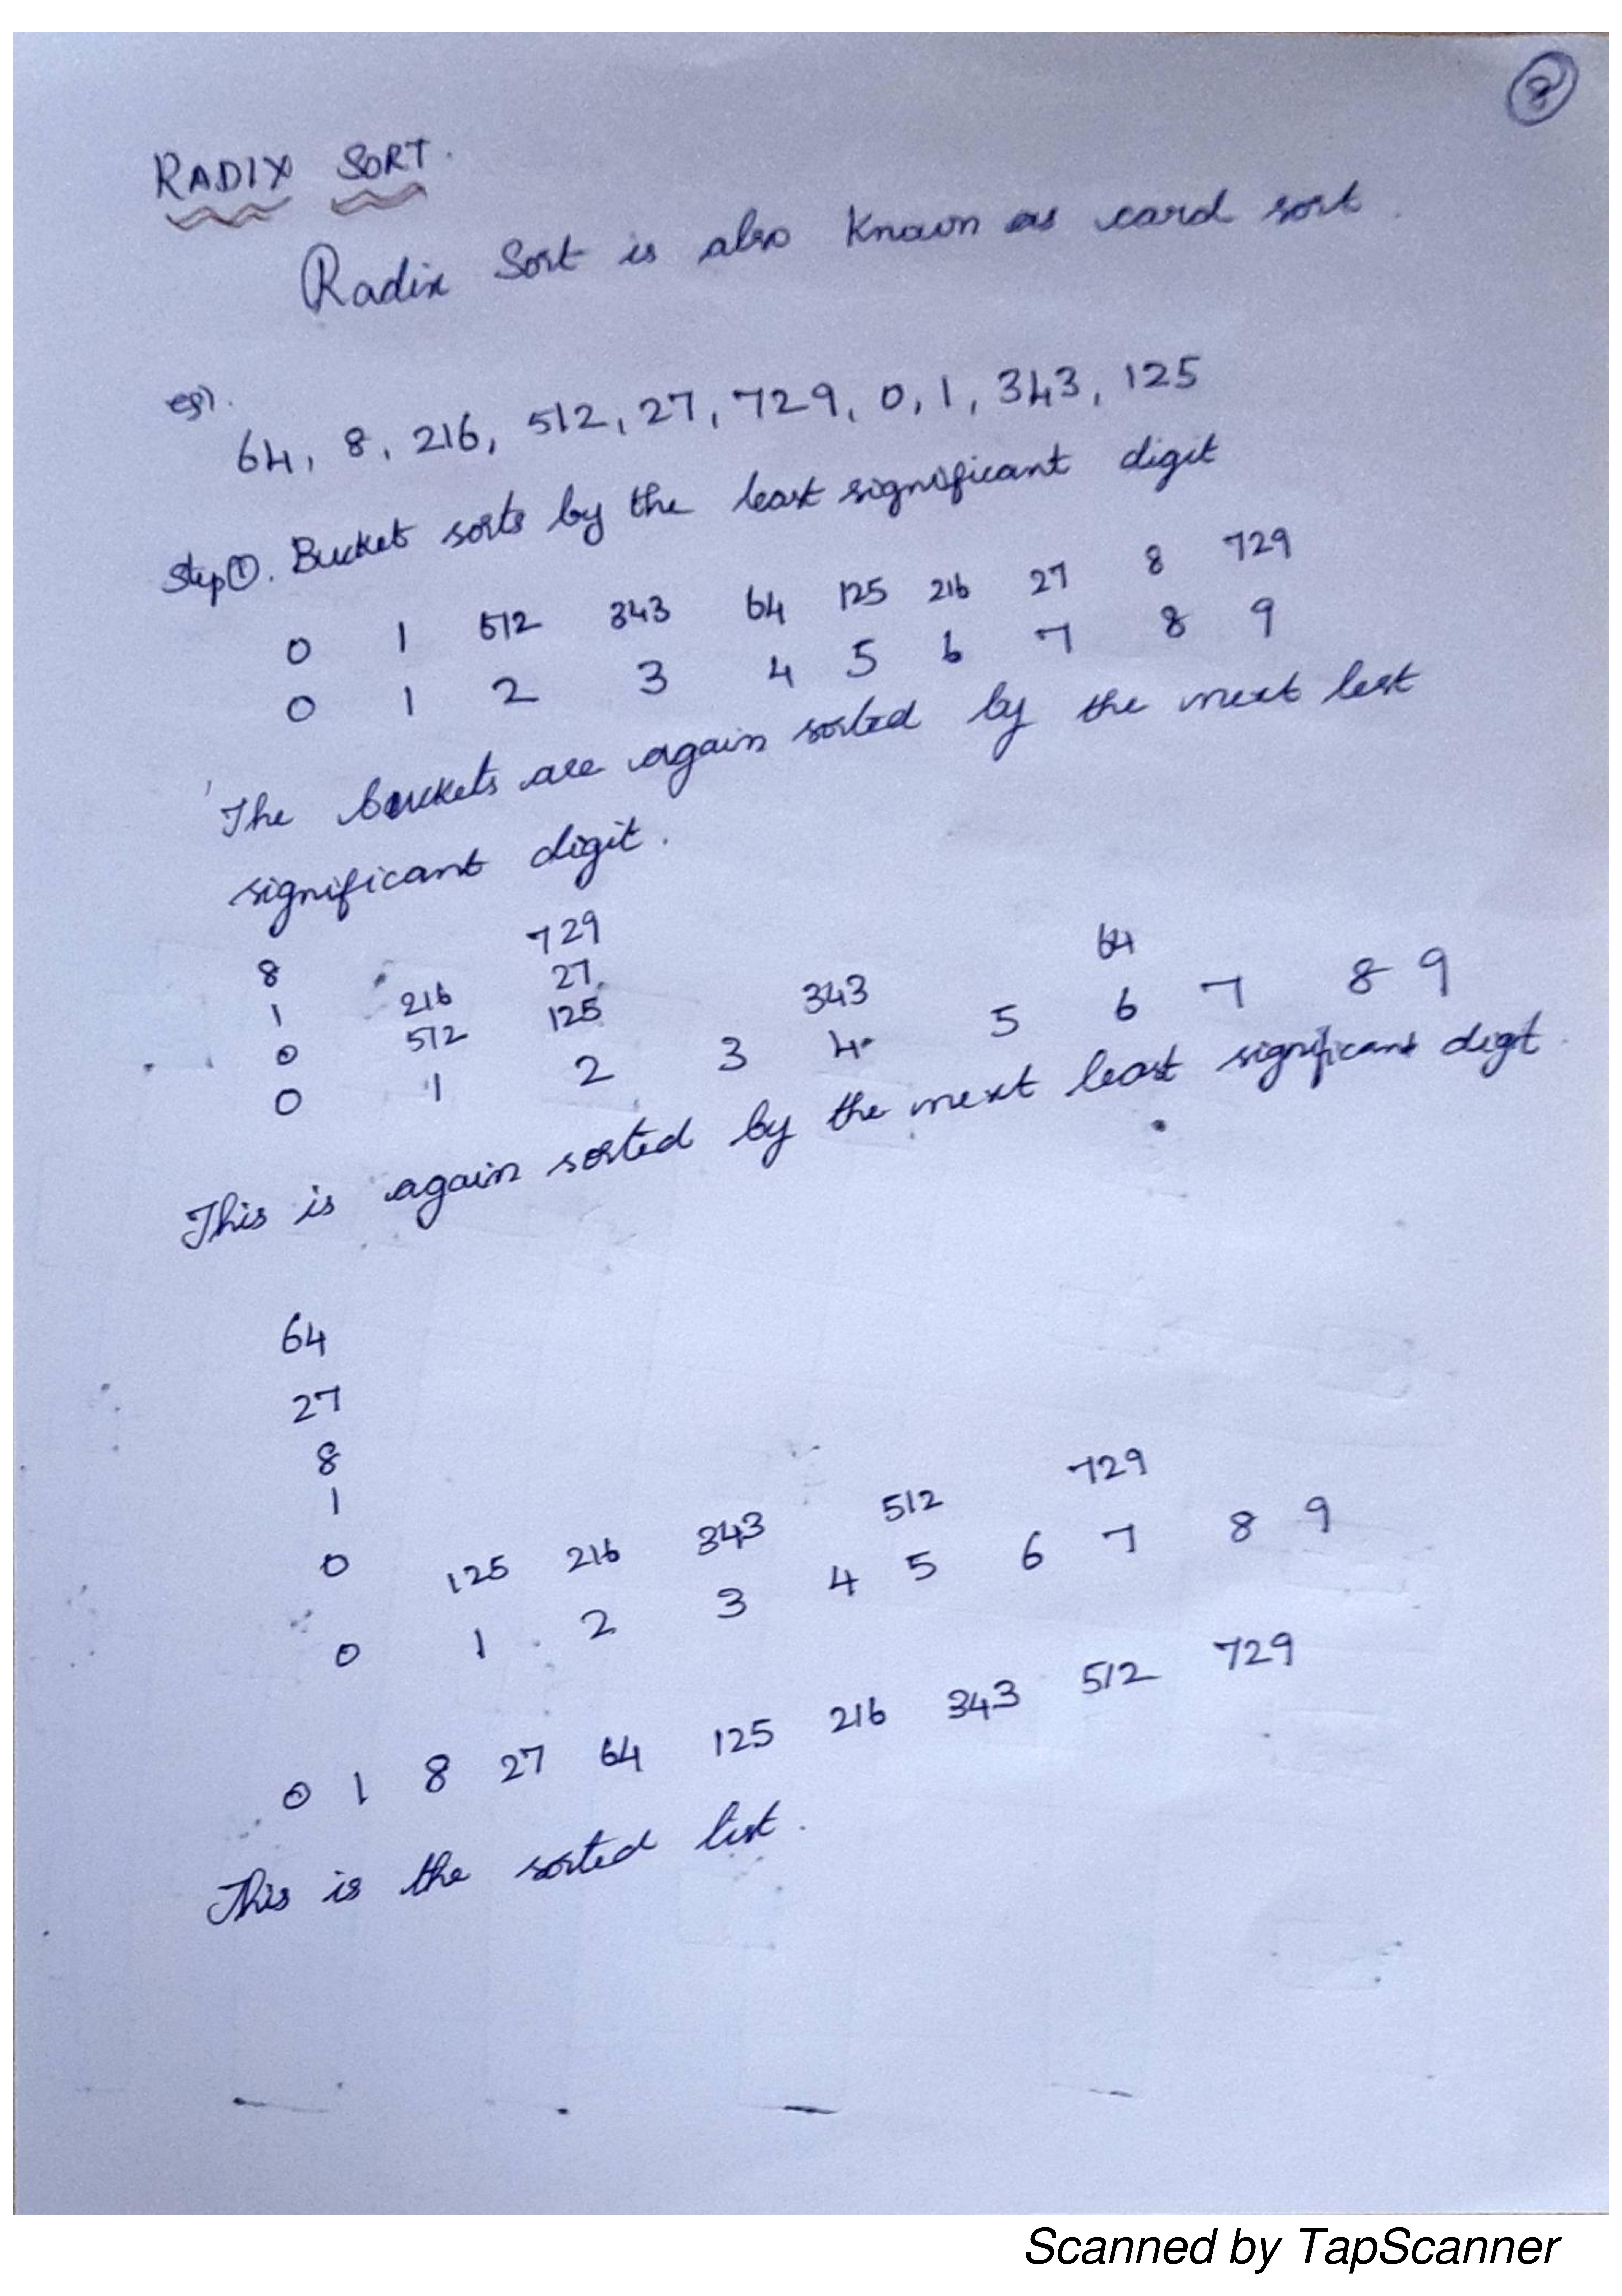 8
RADIX SORT.
Radix Sort is also known as card sort.
eg).
64, 8, 216, 512, 27, 729, 0, 1, 343, 125
Step ①. Bucket sorts by the least significant digit
0 1 512 343 64 125 216 27 8 729
0 1 2 3 4 5 6 7 8 9
The buckets are again sorted by the next lest
significant digit.
729
8 27 64
1 216 125 343
0 512
0 1 2 3 4 5 6 7 8 9
This is again sorted by the next least significant digit
64
27
8
1
0 125 216 343 512 729
0 1 2 3 4 5 6 7 8 9
0 1 8 27 64 125 216 343 512 729
This is the sorted list.
Scanned by TapScanner